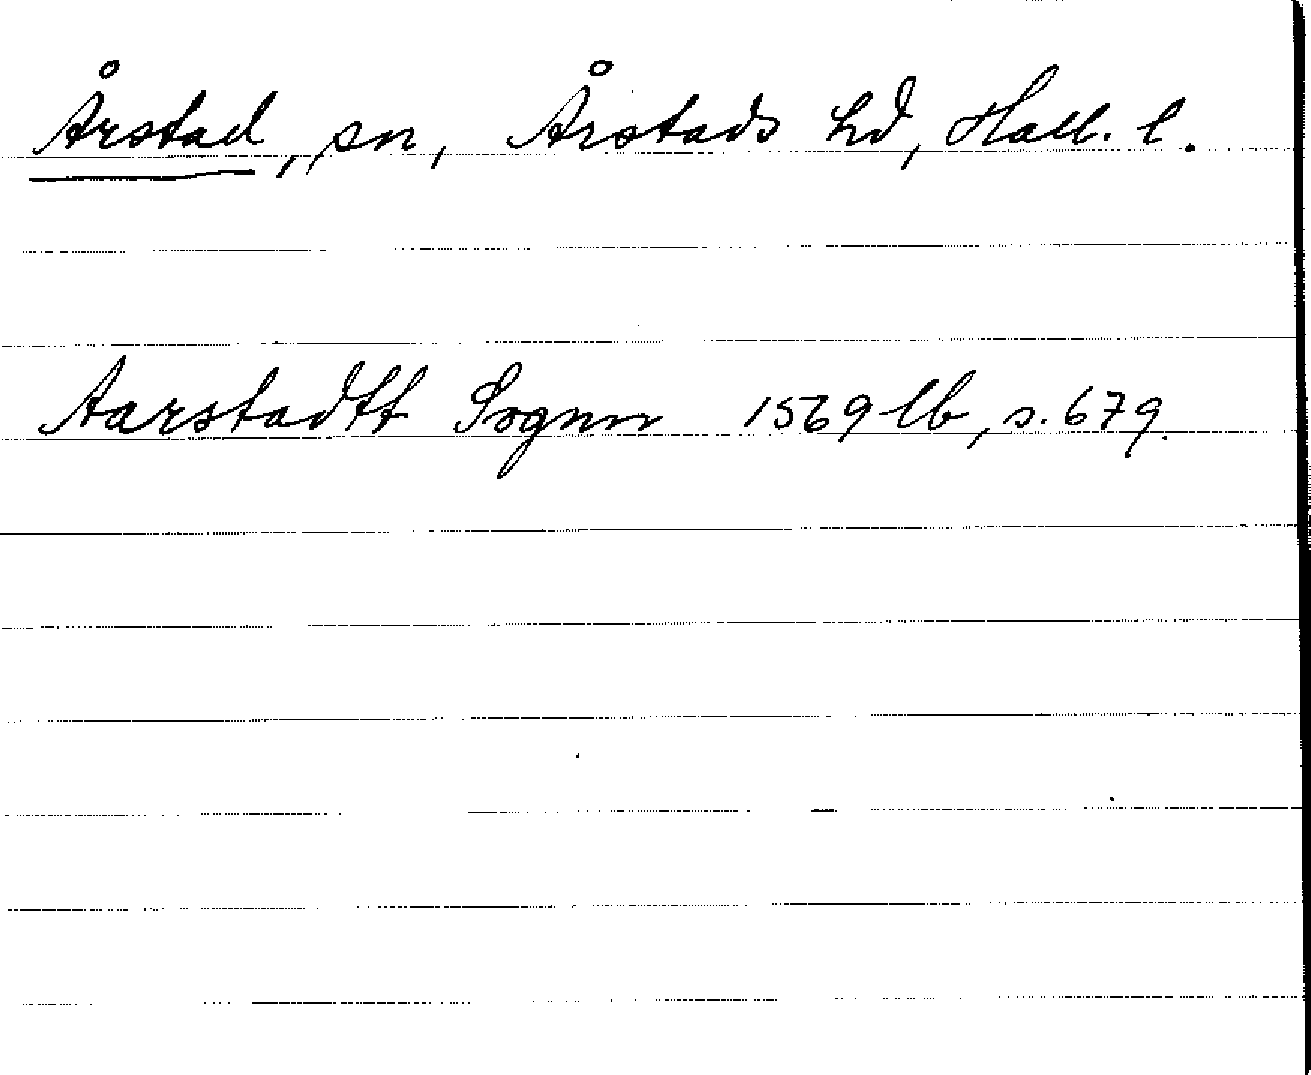 Årstad, sn, Årstads hd, Hall. l.
Aarstadtt Sognn 1569 lb, s. 679.